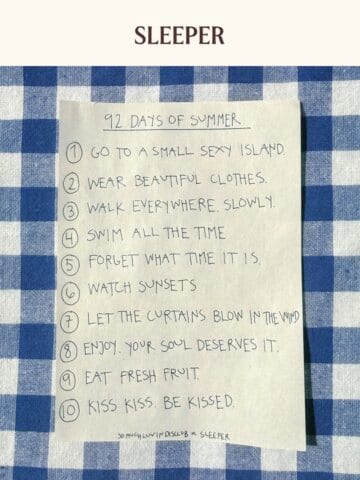 SLEEPER
92 DAYS OF SUMMER
1 GO TO A SMALL SEXY ISLAND.
2 WEAR BEAUTIFUL CLOTHES.
3 WALK EVERYWHERE. SLOWLY.
4 SWIM ALL THE TIME
5 FORGET WHAT TIME IT IS.
6 WATCH SUNSETS
7 LET THE CURTAINS BLOW IN THE WIND
8 ENJOY. YOUR SOUL DESERVES IT.
9 EAT FRESH FRUIT.
10 KISS KISS. BE KISSED.
SOMUCHLUVINDISCLUB × SLEEPER